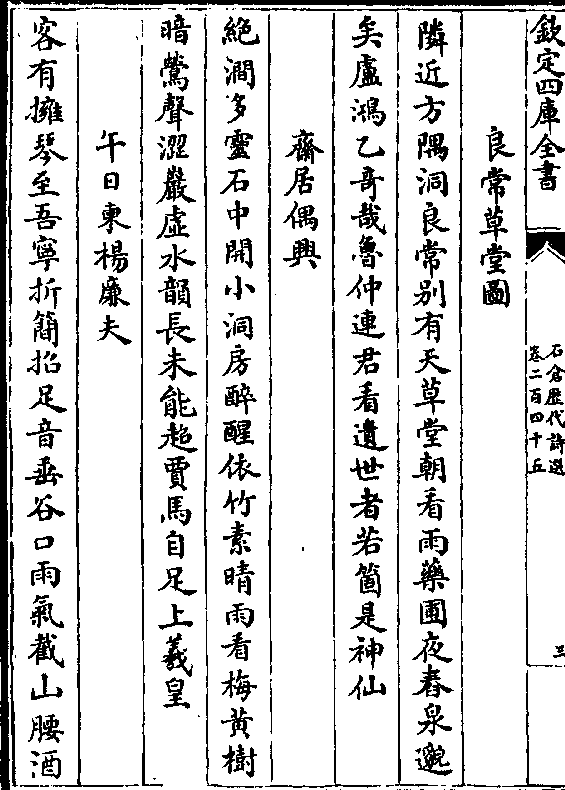 欽定四庫全書
石倉歴代詩選
卷二百四十五
三
良常草堂圖
隣近方隅洞良常别有天草堂朝看雨藥圃夜舂泉邈
矣盧鴻乙竒哉魯仲連君看遺世者若箇是神仙
齋居偶興
絶澗多靈石中開小洞房醉醒依竹素晴雨看梅黄樹
暗鶯聲澀巖虚水韻長未能超賈馬自足上羲皇
午日柬楊廉夫
客有擁琴至吾寧折簡招足音垂谷口雨氣截山腰酒